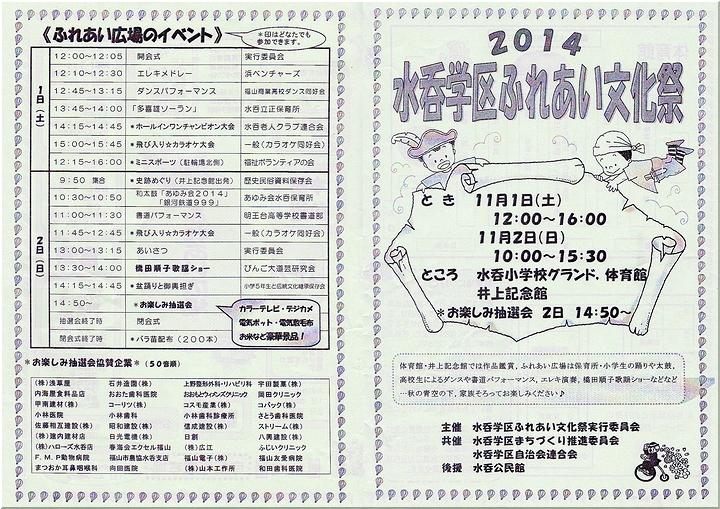 《ふれあい広場のイベント》
*印はどなたでも
参加できます。
1日(土)
12:00~12:05 開会式 実行委員会
12:10~12:30 エレキメドレー 浜ベンチャーズ
12:45~13:15 ダンスパフォーマンス 福山商業高校ダンス同好会
13:45~14:00 「多喜雄ソーラン」 水呑立正保育所
14:15~14:45 *ホールインワンチャンピオン大会 水呑老人クラブ連合会
15:00~15:45 *飛び入り☆カラオケ大会 一般(カラオケ同好会)
12:15~16:00 *ミニスポーツ(駐輪場北側) 福祉ボランティアの会
2日(日)
9:50 集合 *史跡めぐり(井上記念館出発) 歴史民俗資料保存会
10:30~10:50 和太鼓「あゆみ会2014」
「銀河鉄道999」 あゆみ会水呑保育所
11:00~11:30 書道パフォーマンス 明王台高等学校書道部
11:45~12:45 *飛び入り☆カラオケ大会 一般(カラオケ同好会)
13:00~13:15 あいさつ 実行委員会
13:30~14:00 橋田順子歌謡ショー びんご大道芸研究会
14:15~14:45 *盆踊りと御輿担ぎ 小学5年生と伝統文化継承保存会
14:50~ *お楽しみ抽選会
抽選会終了時 閉会式
閉会式終了時 *バラ苗配布(200本)
カラーテレビ・デジカメ
電気ポット・電気敷毛布
お米など豪華景品!
*お楽しみ抽選会協賛企業*(50音順)
(株)浅草屋 石井造園(株) 上野整形外科・リハビリ科 宇田製菓(株)
内海屋食料品店 おおた歯科医院 おおもとウィメンズクリニック 岡田クリニック
甲南建材(株) コーリツ(株) コスモ産業(株) コバック(株)
小林医院 小林歯科 小林歯科診療所 さとう歯科医院
佐藤相互建設(株) 昭和建設(株) 信成建設(株) ストリーム(株)
(株)建内建材店 日光電機(株) 日創 八興建設(株)
(株)ハローズ水呑店 春海会エクセル福山 (株)広江 ふじいクリニック
F.M.P動物病院 福山市農協水呑支店 福山電子(株) 福山友愛病院
まつおか耳鼻咽喉科 向田医院 (株)山本工作所 和田歯科医院
2014
水呑学区ふれあい文化祭
とき 11月1日(土)
12:00~16:00
11月2日(日)
10:00~15:30
ところ 水呑小学校グランド、体育館
井上記念館
*お楽しみ抽選会 2日 14:50~
体育館・井上記念館では作品鑑賞、ふれあい広場は保育所・小学生の踊りや太鼓、
高校生によるダンスや書道パフォーマンス、エレキ演奏、橋田順子歌謡ショーなどなど
…秋の青空の下、家族そろってお楽しみください♪
主催 水呑学区ふれあい文化祭実行委員会
共催 水呑学区まちづくり推進委員会
水呑学区自治会連合会
後援 水呑公民館